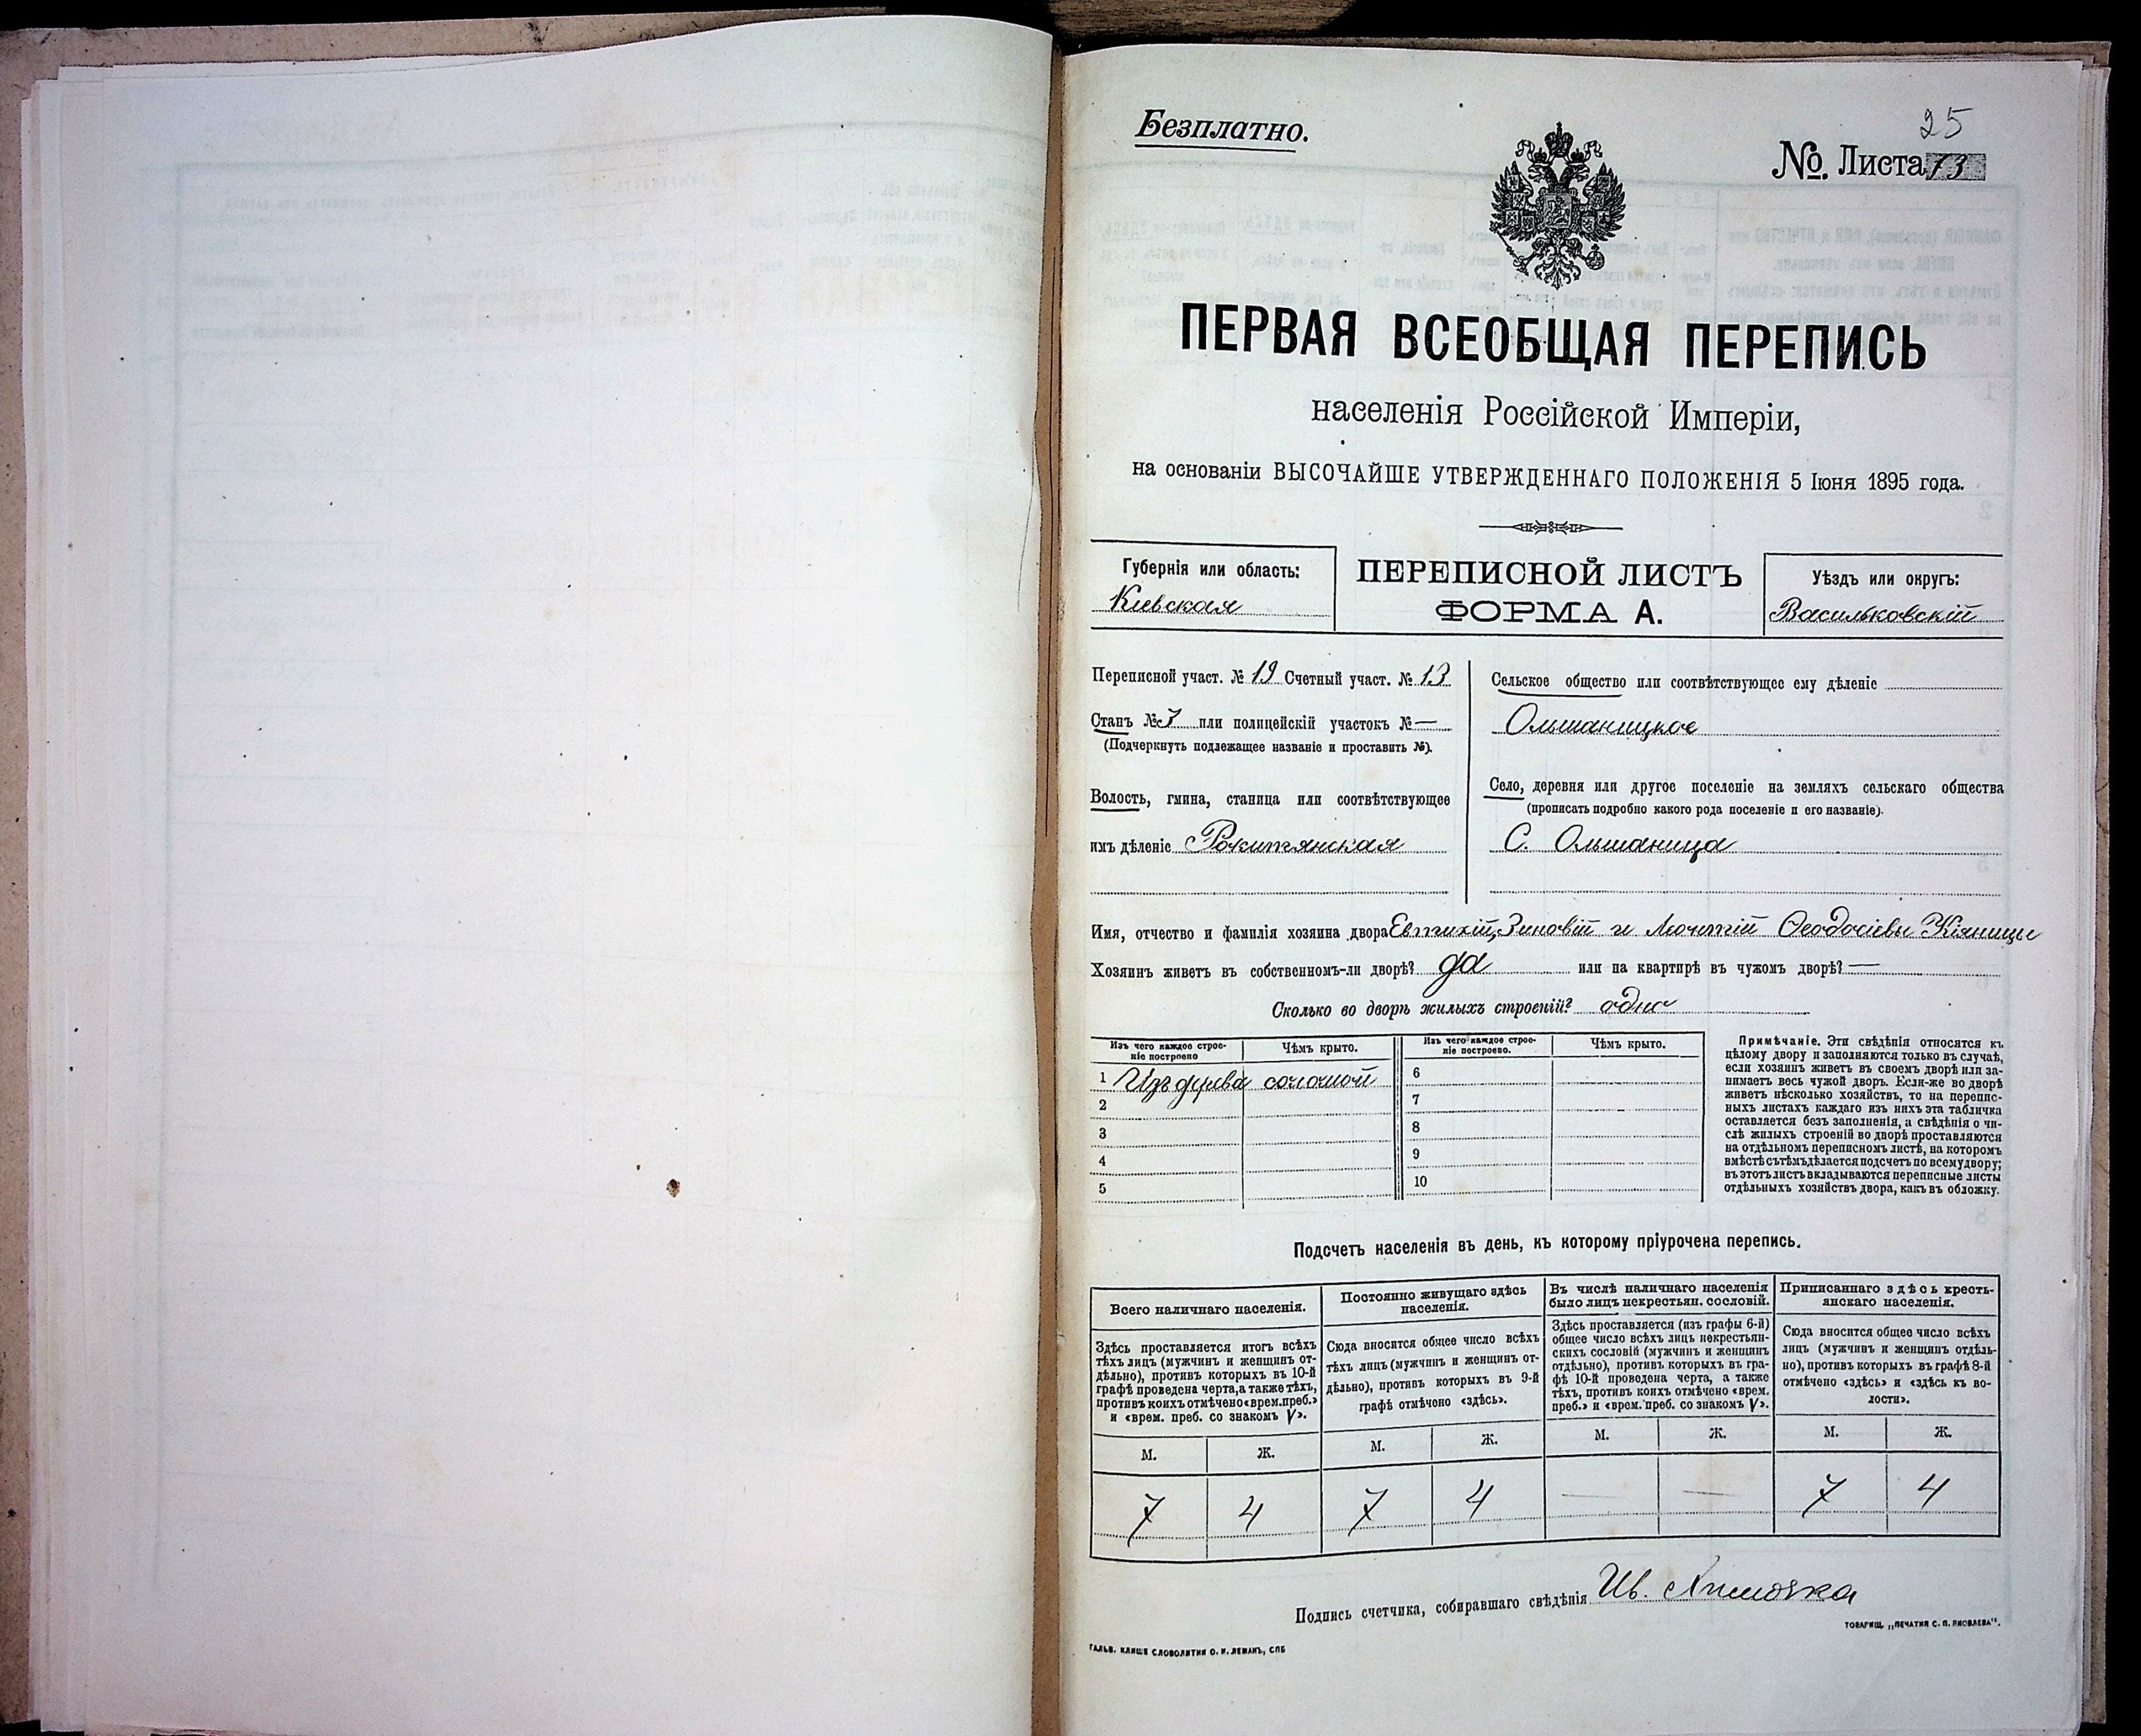 25
Безплатно.
№. Листа 13
ПЕРВАЯ ВСЕОБЩАЯ ПЕРЕПИСЬ
населенія Россійской Имперіи,
на основаніи ВЫСОЧАЙШЕ УТВЕРЖДЕННАГО ПОЛОЖЕНІЯ 5 Іюня 1895 года.
Губернія или область:
Кіевская
ПЕРЕПИСНОЙ ЛИСТЪ
ФОРМА А.
Уѣздъ или округъ:
Васильковскій
Переписной участ. № 19 Счетный участ. № 13
Станъ № 7 или полицейскій участокъ № —
(Подчеркнуть подлежащее названіе и проставить №).
Волость, гмина, станица или соотвѣтствующее
имъ дѣленіе Рокитянская
Сельское общество или соотвѣтствующее ему дѣленіе
Ольшаницкое
Село, деревня или другое поселеніе на земляхъ сельскаго общества
(прописать подробно какого рода поселеніе и его названіе).
С. Ольшаница
Имя, отчество и фамилія хозяина двора Евтихій, Зиновій и Леонтій Ѳеодосіевы Кіяницы
Хозяинъ живетъ въ собственномъ-ли дворѣ? да или на квартирѣ въ чужомъ дворѣ? —
Сколько во дворѣ жилыхъ строеній? одно
Изъ чего каждое строе-
ніе построено
Чѣмъ крыто.
Изъ чего каждое строе-
ніе построено.
Чѣмъ крыто.
1 Изъ дерева соломой
2
3
4
5
6
7
8
9
10
Примѣчаніе. Эти свѣдѣнія относятся къ
цѣлому двору и заполняются только въ случаѣ,
если хозяинъ живетъ въ своемъ дворѣ или за-
нимаетъ весь чужой дворъ. Если-же во дворѣ
живетъ нѣсколько хозяйствъ, то на перепис-
ныхъ листахъ каждаго изъ нихъ эта табличка
оставляется безъ заполненія, а свѣдѣнія о чи-
слѣ жилыхъ строеній во дворѣ проставляются
на отдѣльномъ переписномъ листѣ, на которомъ
вмѣстѣ съ тѣмъ дѣлается подсчетъ по всему двору;
въ этотъ листъ вкладываются переписные листы
отдѣльныхъ хозяйствъ двора, какъ въ обложку.
Подсчетъ населенія въ день, къ которому пріурочена перепись.
Всего наличнаго населенія.
Здѣсь проставляется итогъ всѣхъ
тѣхъ лицъ (мужчинъ и женщинъ от-
дѣльно), противъ которыхъ въ 10-й
графѣ проведена черта, а также тѣхъ,
противъ коихъ отмѣчено «врем. преб.»
и «врем. преб. со знакомъ V».
М. Ж.
7 4
Постоянно живущаго здѣсь
населенія.
Сюда вносится общее число всѣхъ
тѣхъ лицъ (мужчинъ и женщинъ от-
дѣльно), противъ которыхъ въ 9-й
графѣ отмѣчено «здѣсь».
М. Ж.
7 4
Въ числѣ наличнаго населенія
было лицъ некрестьян. сословій.
Здѣсь проставляется (изъ графы 6-й)
общее число всѣхъ лицъ некрестьян-
скихъ сословій (мужчинъ и женщинъ
отдѣльно), противъ которыхъ въ гра-
фѣ 10-й проведена черта, а также
тѣхъ, противъ коихъ отмѣчено «врем.
преб.» и «врем. преб. со знакомъ V».
М. Ж.
— —
Приписаннаго здѣсь кресть-
янскаго населенія.
Сюда вносится общее число всѣхъ
лицъ (мужчинъ и женщинъ отдѣль-
но), противъ которыхъ въ графѣ 8-й
отмѣчено «здѣсь» и «здѣсь къ во-
лости».
М. Ж.
7 4
Подпись счетчика, собиравшаго свѣдѣнія Ив.
ТОВАРИЩ. „ПЕЧАТНЯ С. П. ЯКОВЛЕВА“.
ГАЛЬВ. КЛИШЕ СЛОВОЛИТНИ О. И. ЛЕМАНЪ, СПБ